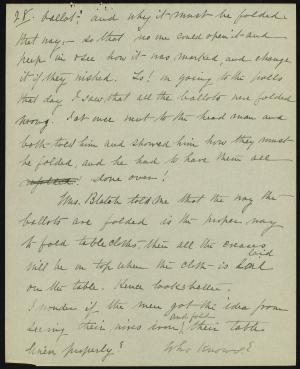 28. ballot? and why it must be folded
that way;- so that no one could open it and
peep in & see how it was marked, and change
it if they wished. Lo! in going to the polls
that day I saw, that all the ballots were folded
wrong. I at once went to the head man and
both told him and showed him how they must
be folded, and he had to have them all
done over!
Mrs. Blatch told me that the way the
ballots are folded is the proper way
to fold table cloths, then all the creases
will be on top when the cloth is laid
on the table. Hence looks better.
I wonder if the men got the idea from
seeing their wives iron and fold their table
linen properly?
Who Knows?